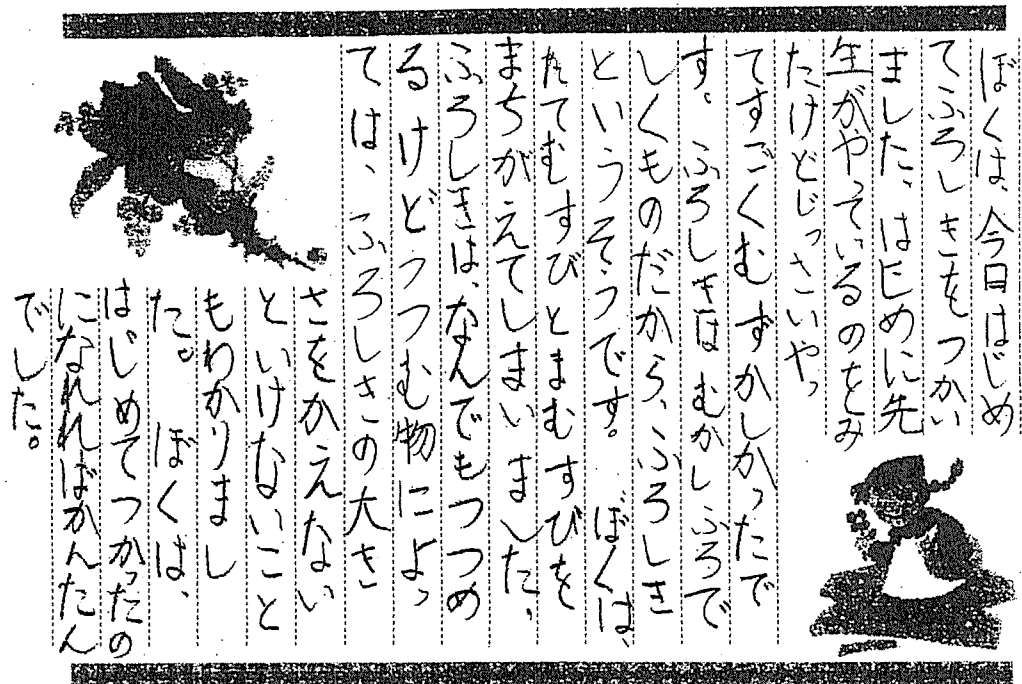 ぼくは、今日はじめ
てふろしきをつかい
ました、はじめに先
生がやっているのをみ
たけどじっさいやっ
てすごくむずかしかったで
す。ふろしきはむかしふろで
しくものだから、ふろしき
というそうです。ぼくは、
たてむすびとまむすびを
まちがえてしまいました、
ふろしきは、なんでもつつめ
るけどつつむ物によっ
ては、ふろしきの大き
さをかえない
といけないこと
もわかりまし
た。ぼくは、
はじめてつかったの
になれればかんたん
でした。